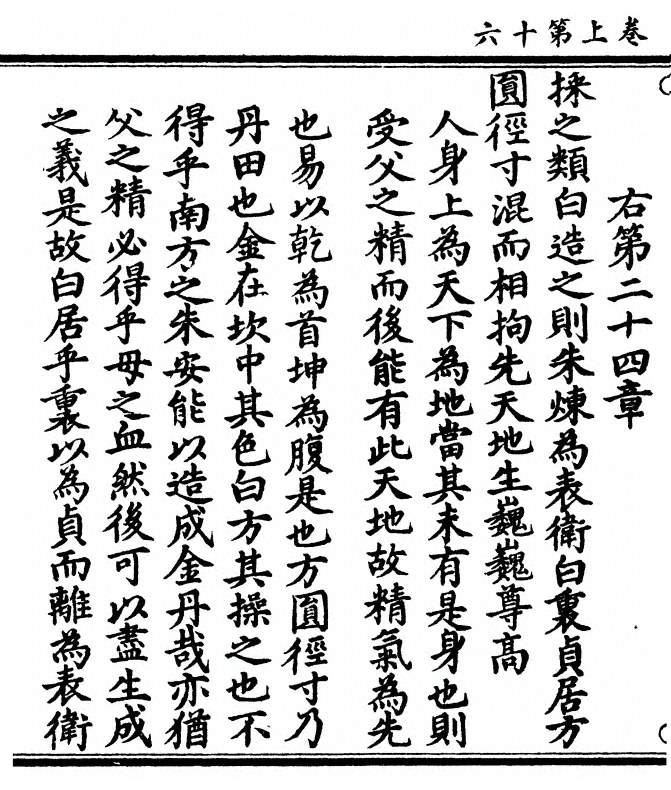 卷上第十六
右第二十四章
採之類白造之則朱煉為表衛白裏貞居方
圓徑寸混而相拘先天地生巍巍尊高
人身上為天下為地當其未有是身也則
受父之精而後能有此天地故精氣為先
也易以乾為首坤為腹是也方圓徑寸乃
丹田也金在坎中其色白方其操之也不
得乎南方之朱安能以造成金丹哉亦猶
父之精必得乎母之血然後可以盡生成
之義是故白居乎裏以為貞而離為表衛